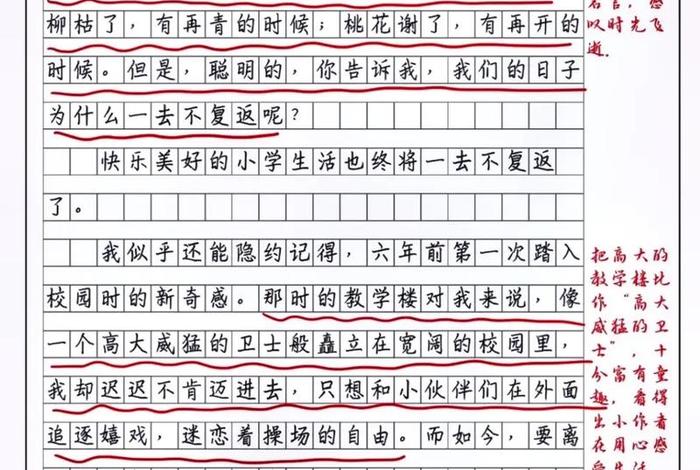 柳枯了，有再青的时候；桃花谢了，有再开的
时候。但是，聪明的，你告诉我，我们的日子
为什么一去不复返呢？
快乐美好的小学生活也终将一去不复返
了。
我似乎还能隐约记得，六年前第一次踏入
校园时的新奇感。那时的教学楼对我来说，像
一个高大威猛的卫士般矗立在宽阔的校园里，
我却迟迟不肯迈进去，只想和小伙伴们在外面
追逐嬉戏，迷恋着操场的自由。而如今，要离
名言，感
叹时光飞
逝.
把高大的
教学楼比
作“高大
威猛的卫
士”，十
分富有童
趣，看得
出小作者
在用心感
受生活